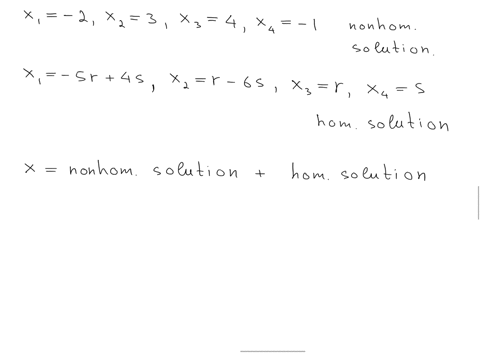 x₁ = -2, x₂ = 3, x₃ = 4, x₄ = -1 nonhom.
solution.
x₁ = -5r + 4s, x₂ = r - 6s, x₃ = r, x₄ = s
hom. solution
x = nonhom. solution + hom. solution